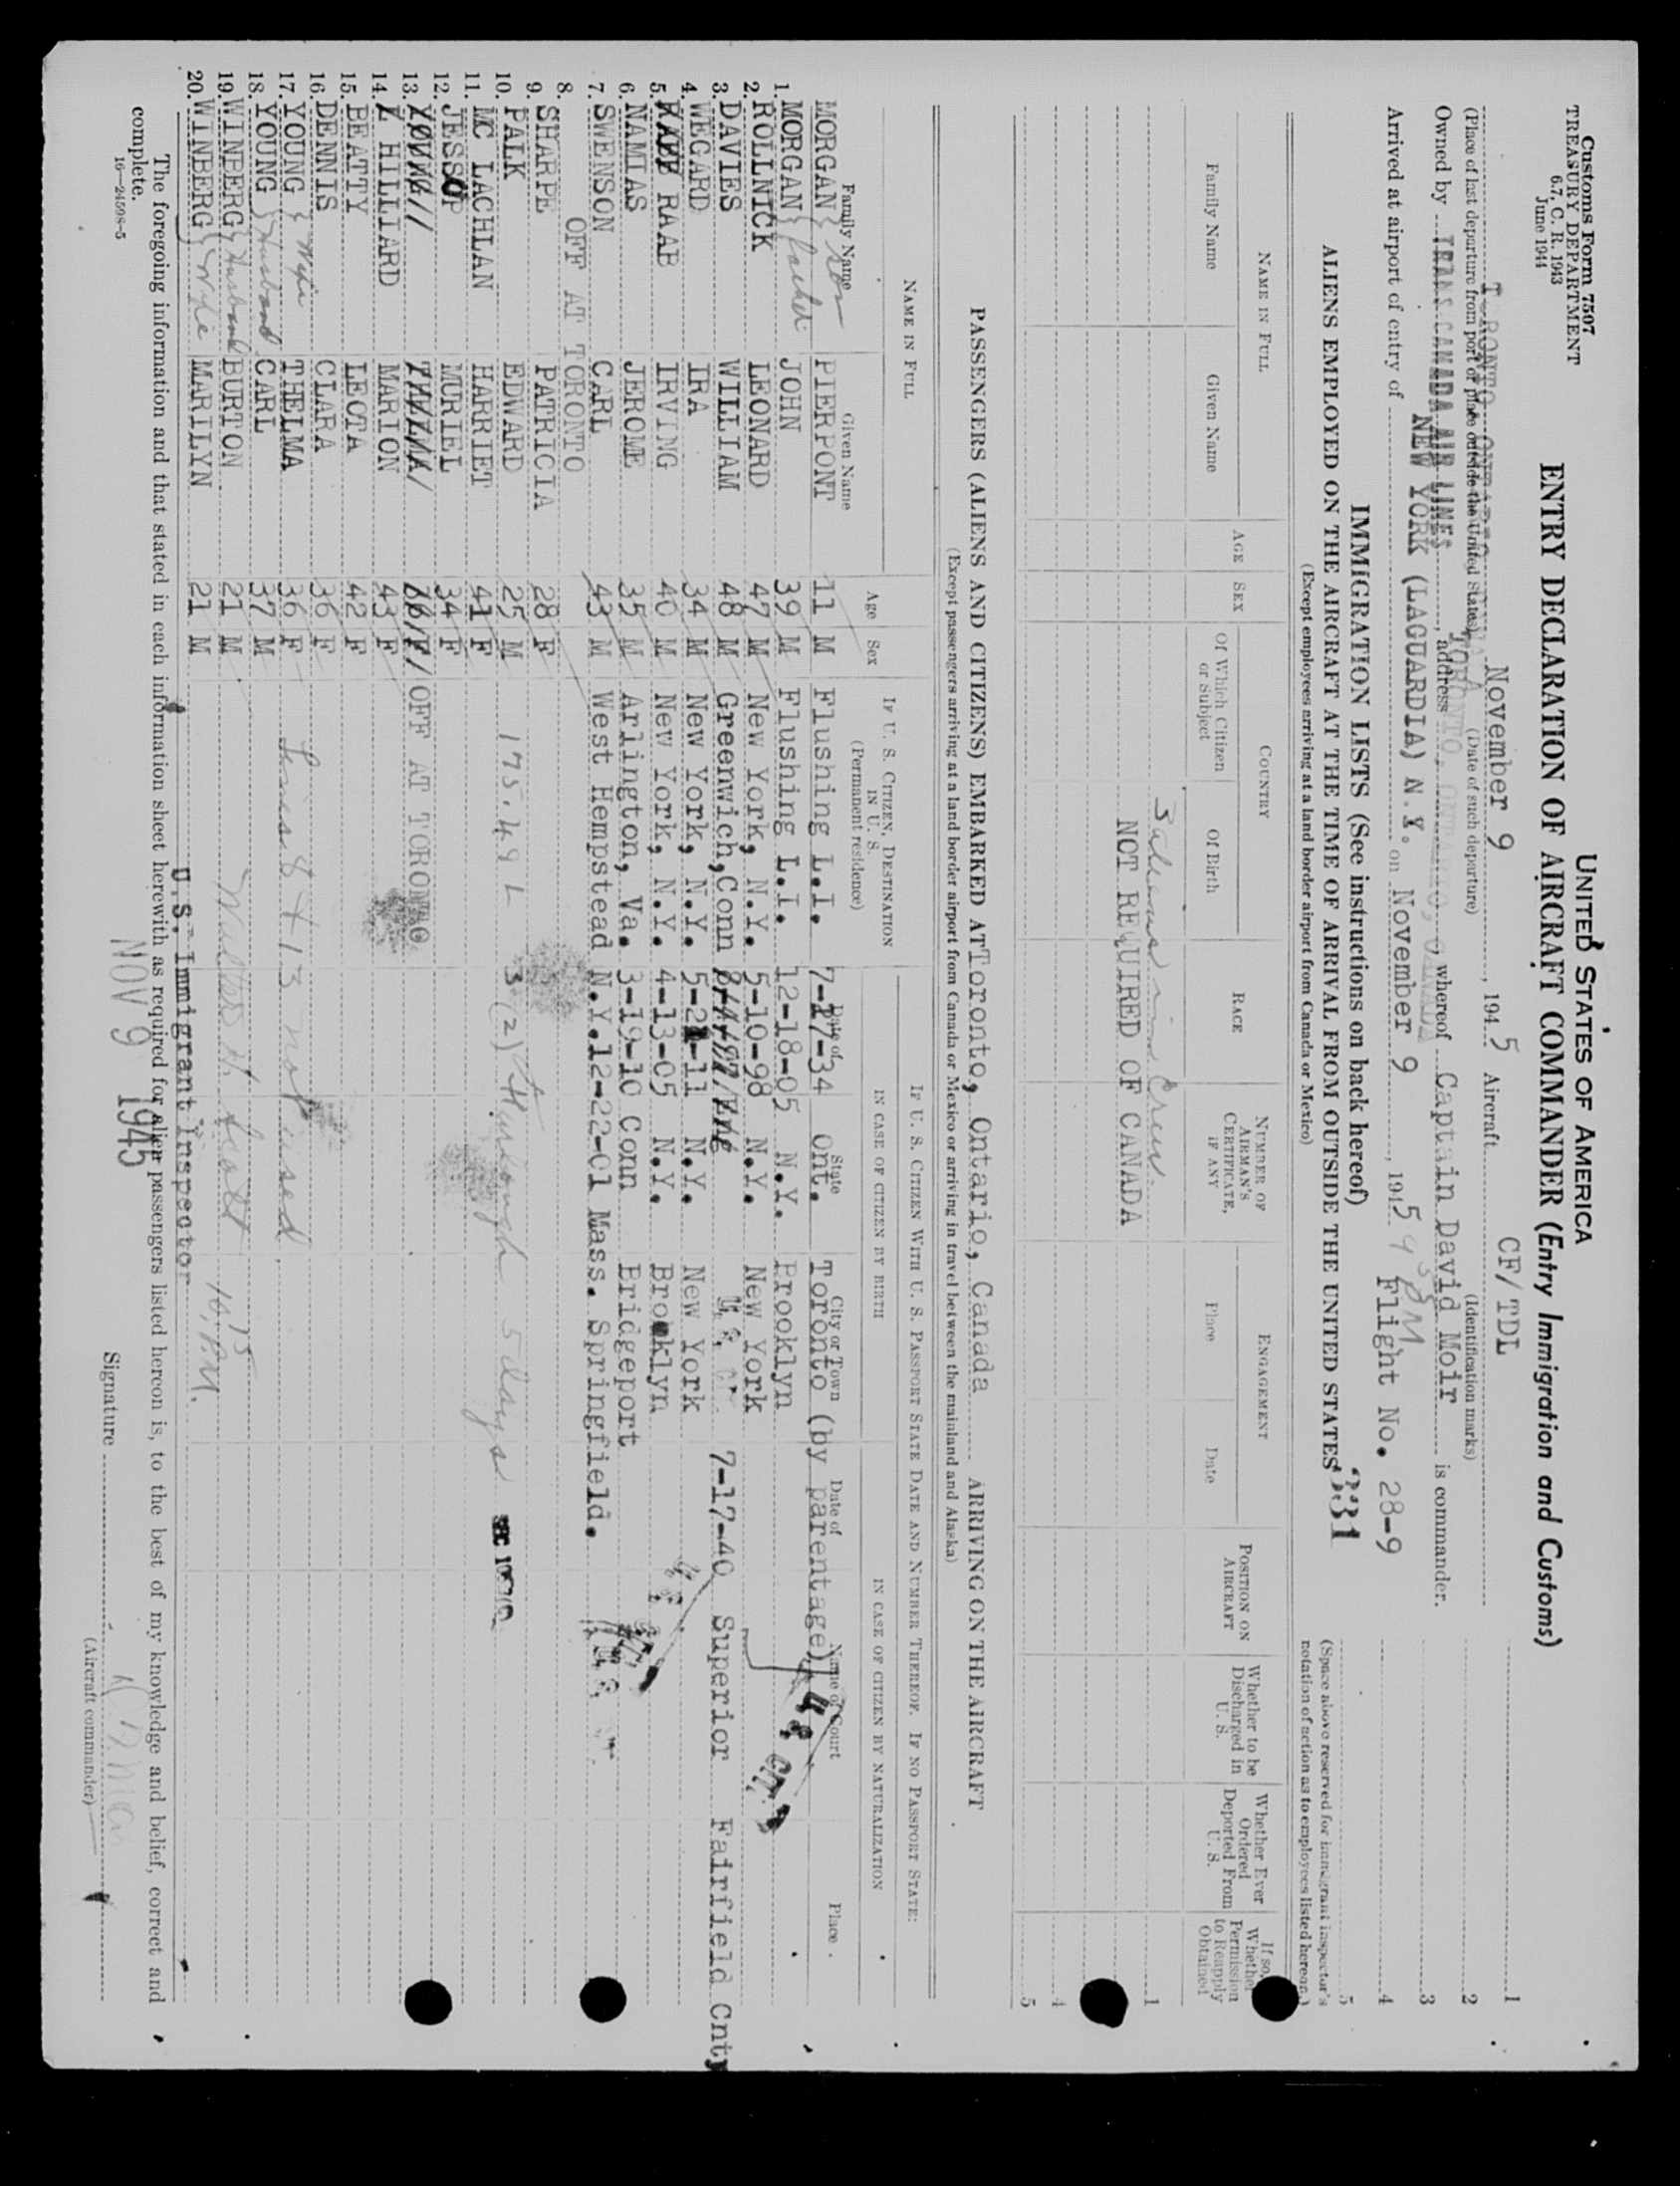 Customs Form 7507
TREASURY DEPARTMENT
6.7, C. R. 1943
June 1944
UNITED STATES OF AMERICA
ENTRY DECLARATION OF AIRCRAFT COMMANDER (Entry Immigration and Customs)
November 9, 1945 Aircraft CF/TDL
(Place of last departure from port or place outside the United States) (Date of such departure) (Identification marks)
Owned by TRANS CANADA AIR LINES, address TORONTO, ONTARIO, whereof Captain David Moir is commander.
Arrived at airport of entry of NEW YORK (LAGUARDIA) N.Y. on November 9, 1945 Flight No. 28-9
1
2
3
4
5
(Space above reserved for immigrant inspector's notation of action as to employees listed hereon.)
IMMIGRATION LISTS (See instructions on back hereof)
331
ALIENS EMPLOYED ON THE AIRCRAFT AT THE TIME OF ARRIVAL FROM OUTSIDE THE UNITED STATES
(Except employees arriving at a land border airport from Canada or Mexico)
NAME IN FULL AGE SEX COUNTRY RACE NUMBER OF AIRMAN'S CERTIFICATE, IF ANY ENGAGEMENT POSITION ON AIRCRAFT Whether to be Discharged in U. S. Whether Ever Ordered Deported From U. S. If so, Whether Permission to Reapply Obtained
Family Name Given Name Of Which Citizen or Subject Of Birth Place Date
1
Crew
NOT REQUIRED OF CANADA
4
5
PASSENGERS (ALIENS AND CITIZENS) EMBARKED AT Toronto, Ontario, Canada ARRIVING ON THE AIRCRAFT
(Except passengers arriving at a land border airport from Canada or Mexico or arriving in travel between the mainland and Alaska)
NAME IN FULL Age Sex IF U. S. CITIZEN, DESTINATION IN U. S. (Permanent residence) IF U. S. CITIZEN WITH U. S. PASSPORT STATE DATE AND NUMBER THEREOF. IF NO PASSPORT STATE:
IN CASE OF CITIZEN BY BIRTH IN CASE OF CITIZEN BY NATURALIZATION
Family Name Given Name Date of State City or Town Date of Name of Court Place
MORGAN } Son PIERPONT 11 M Flushing L.I. 7-17-34 Ont. Toronto (by parentage)
1. MORGAN } Father JOHN 39 M Flushing L.I. 12-18-05 N.Y. Brooklyn
2. ROLLNICK LEONARD 47 M New York, N.Y. 5-10-98 N.Y. New York
3. DAVIES WILLIAM 48 M Greenwich, Conn 7-17-40 Superior Fairfield Cnty
4. WEGARD IRA 34 M New York, N.Y. 5-21-11 N.Y. New York
5. RAAB IRVING 40 M New York, N.Y. 4-13-05 N.Y. Brooklyn
6. NAMIAS JEROME 35 M Arlington, Va. 3-19-10 Conn Bridgeport
7. SWENSON CARL 43 M West Hempstead N.Y. 12-22-01 Mass. Springfield.
8. OFF AT TORONTO
9. SHARPE PATRICIA 28 F
10. PALK EDWARD 25 M 175.49 L 3 (2) 5 days
11. MC LACHLAN HARRIET 41 F
12. JESSOP MURIEL 34 F
13. YOUNG THELMA 36 F OFF AT TORONTO
14. HILLIARD MARION 43 F
15. BEATTY LEOTA 42 F
16. DENNIS CLARA 36 F
17. YOUNG } Wife THELMA 36 F Lines 8 + 13 not used.
18. YOUNG } Husband CARL 37 M
19. WINBERG } Husband BURTON 21 M
20. WINBERG } Wife MARILYN 21 M
10.15 P.M.
U.S. Immigrant Inspector
The foregoing information and that stated in each information sheet herewith as required for alien passengers listed hereon is, to the best of my knowledge and belief, correct and complete.
NOV 9 1945
16—24598-5
Signature
(Aircraft commander)